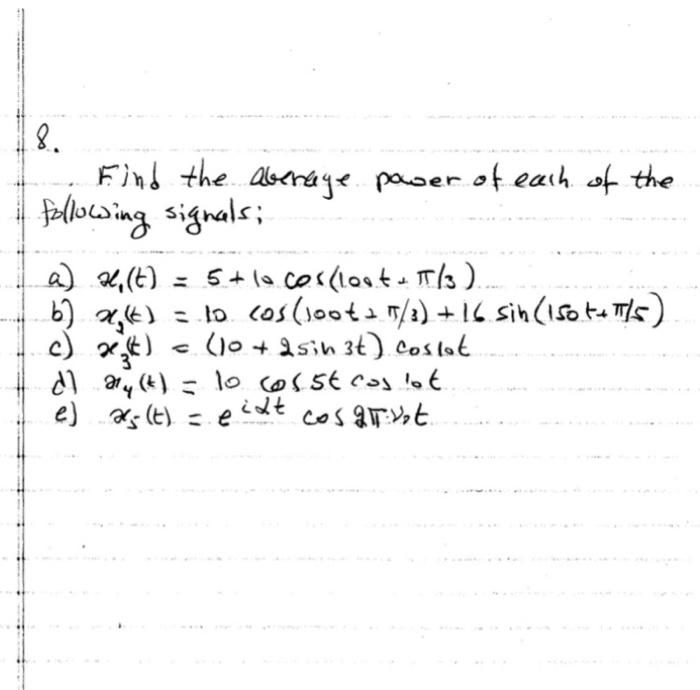 8.
Find the average power of each of the
following signals;
a) x₁(t) = 5 + 10 cos(100t + π/3)
b) x₂(t) = 10 cos(100t + π/3) + 16 sin(150t + π/5)
c) x₃(t) = (10 + 2 sin 3t) cos 10t
d) x₄(t) = 10 cos 5t cos 10t
e) x₅(t) = e^{iαt} cos 2πν₀t